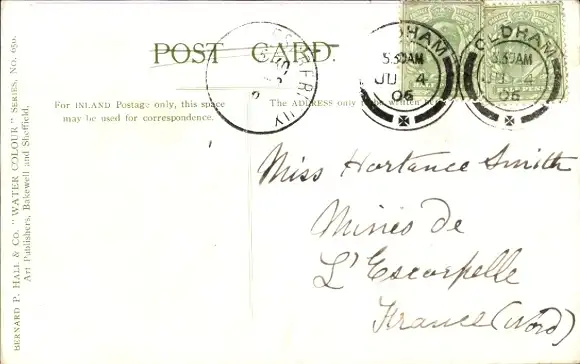 POST CARD.
For INLAND Postage only, this space
may be used for correspondence.
The ADDRESS only to be written here
OLDHAM
5.30AM
JU 4
06
OLDHAM
5.30AM
JU 4
06
HALF PENNY
Miss Hortance Smith
Mines de
L'Escarpelle
France (Nord)
BERNARD P. HALL & CO. "WATER COLOUR" SERIES, NO. 650.
Art Publishers, Bakewell and Sheffield.